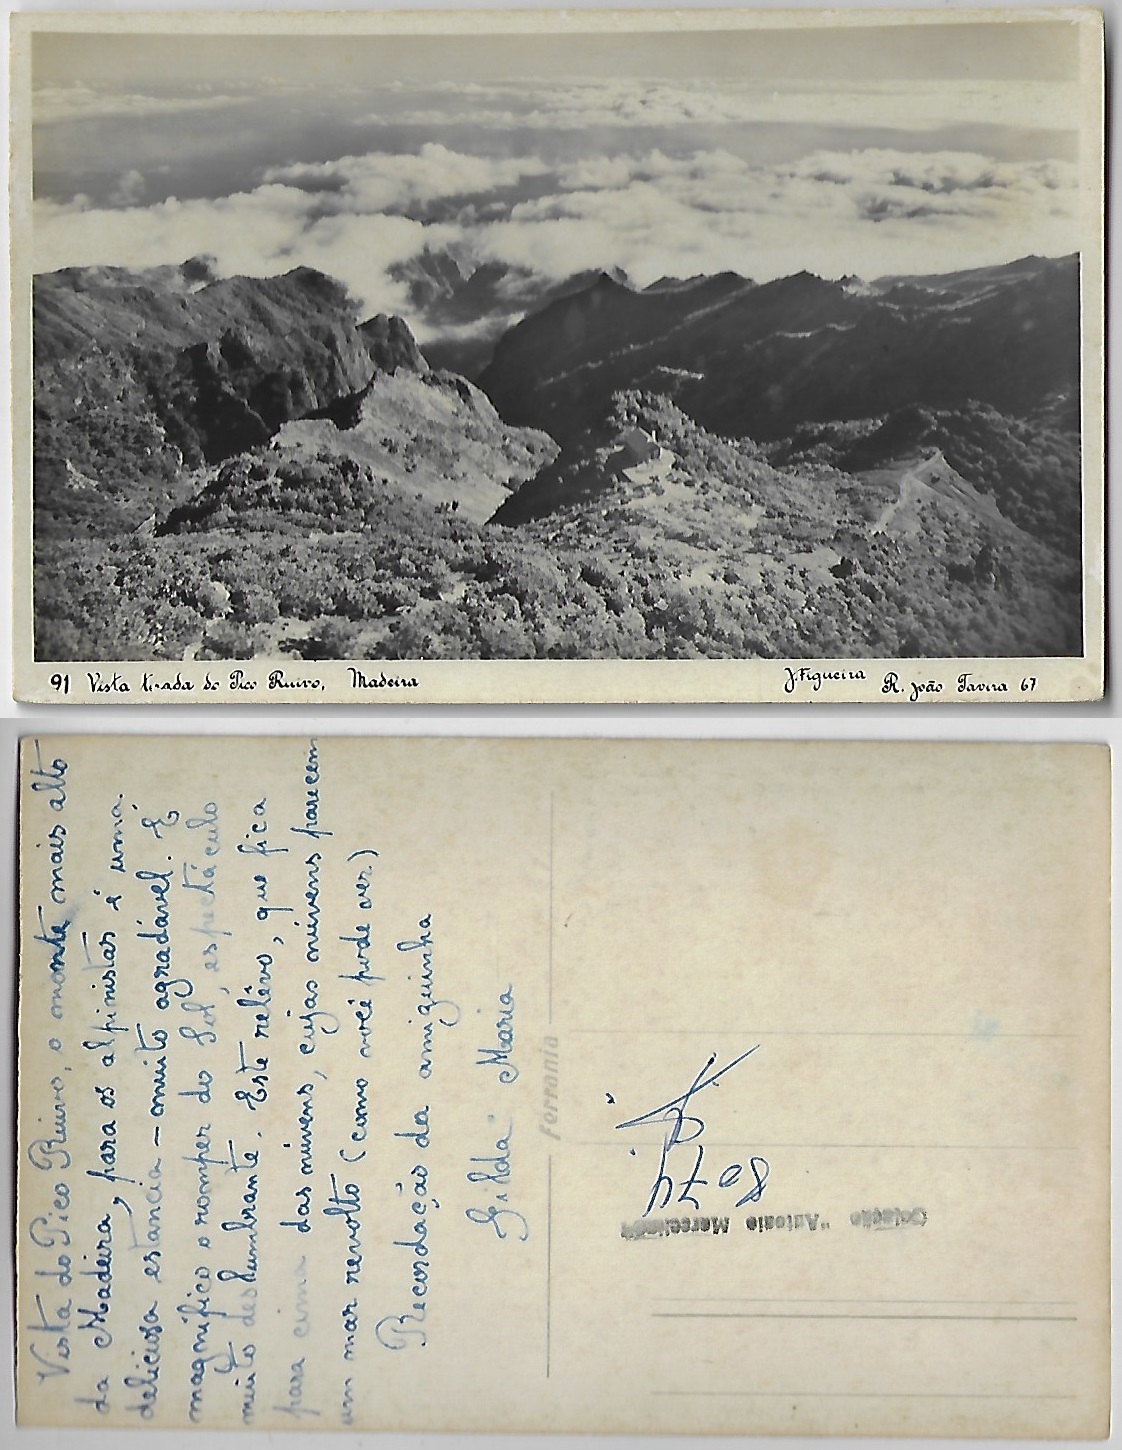 91 Vista tirada do Pico Ruivo, Madeira
J. Figueira R. João Tavira 67
Vista do Pico Ruivo, o monte mais alto
da Madeira, para os alpinistas é uma
deliciosa estancia - muito agradável. É
magnífico o romper do Sol, espectáculo
muito deslumbrante. Este relêvo, que fica
para cima das núvens, cujas núvens parecem
um mar revolto (como você pode ver.)
Recordação da amiguinha
Gilda Maria
Ferrania
Colecção "Antonio Marcelino"